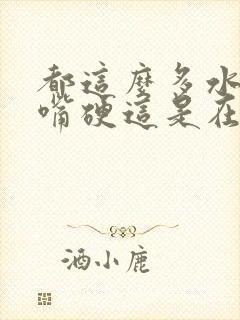 都這麼多水
嘴硬這是在
酒小鹿